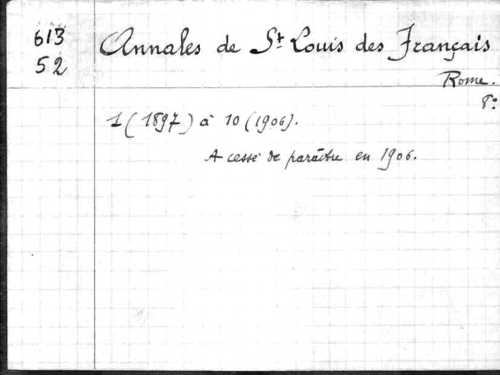 613
52
Annales de St Louis des Français
Rome.
8º
1 (1897) à 10 (1906).
A cessé de paraître en 1906.